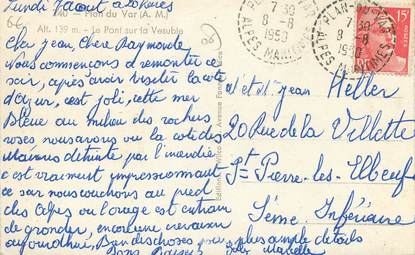 Lundi 7 aout à 20 heures
740 - Plan du Var (A. M.)
Alt. 139 m. - Le Pont sur la Vesubie
Cher Jean, Chère Raymonde
Nous commençons à remonter ce
soir, après avoir visiter la cote
d'Azur, c'est joli, cette mer
Bleue au milieu des roches
roses, nous avons vu la cote des
Maures détruite par l'incendie
c'est vraiment impressionnant
ce soir nous couchons au pied
des Alpes ou l'orage est entrain
de gronder, encore une
aujourd'hui, Bien des choses
plus ample détails
Bons Baisers
PLAN-DU-VAR
7 30
8 - 8
1950
ALPES MARITIMES
PLAN-DU-VAR
7 30
8 - 8
1950
ALPES MARITIMES
15F
M et Me Jean Heller
20 Rue de la Villette
St Pierre-les-Elbeuf
Seine Inférieure